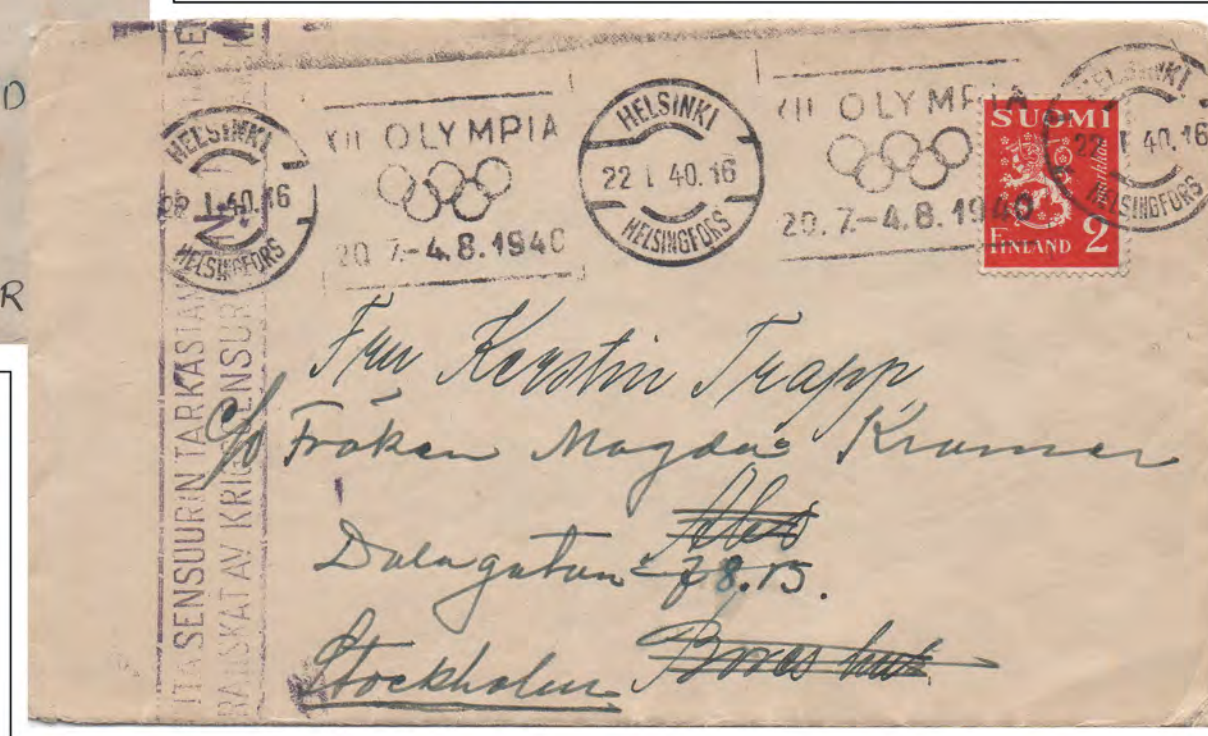 D
R
HELSINKI
22 I 40.16
HELSINGFORS
XII OLYMPIA
20.7.–4.8.1940
HELSINKI
22 I 40.16
HELSINGFORS
XII OLYMPIA
20.7.–4.8.1940
SUOMI
markkaa
FINLAND 2
HELSINKI
22 I 40.16
HELSINGFORS
SENSUURIN TARKASTAM
RANSKAT AV KRIGSCENSUR
Fru Kerstin Trapp
c/o Fröken Magda Kramer
Dalagatan 78.
Stockholm